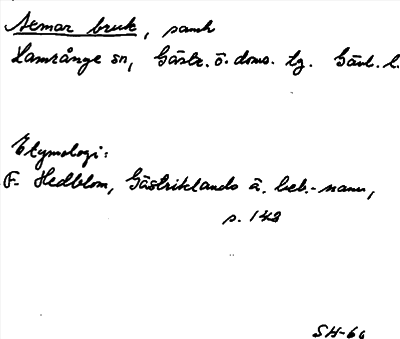 Axmar bruk, samh
Hamrånge sn, Gästr. ö. doms. lg. Gävl. l.
Etymologi:
F. Hedblom, Gästriklands ä. beb.-namn,
s. 142
SH-66